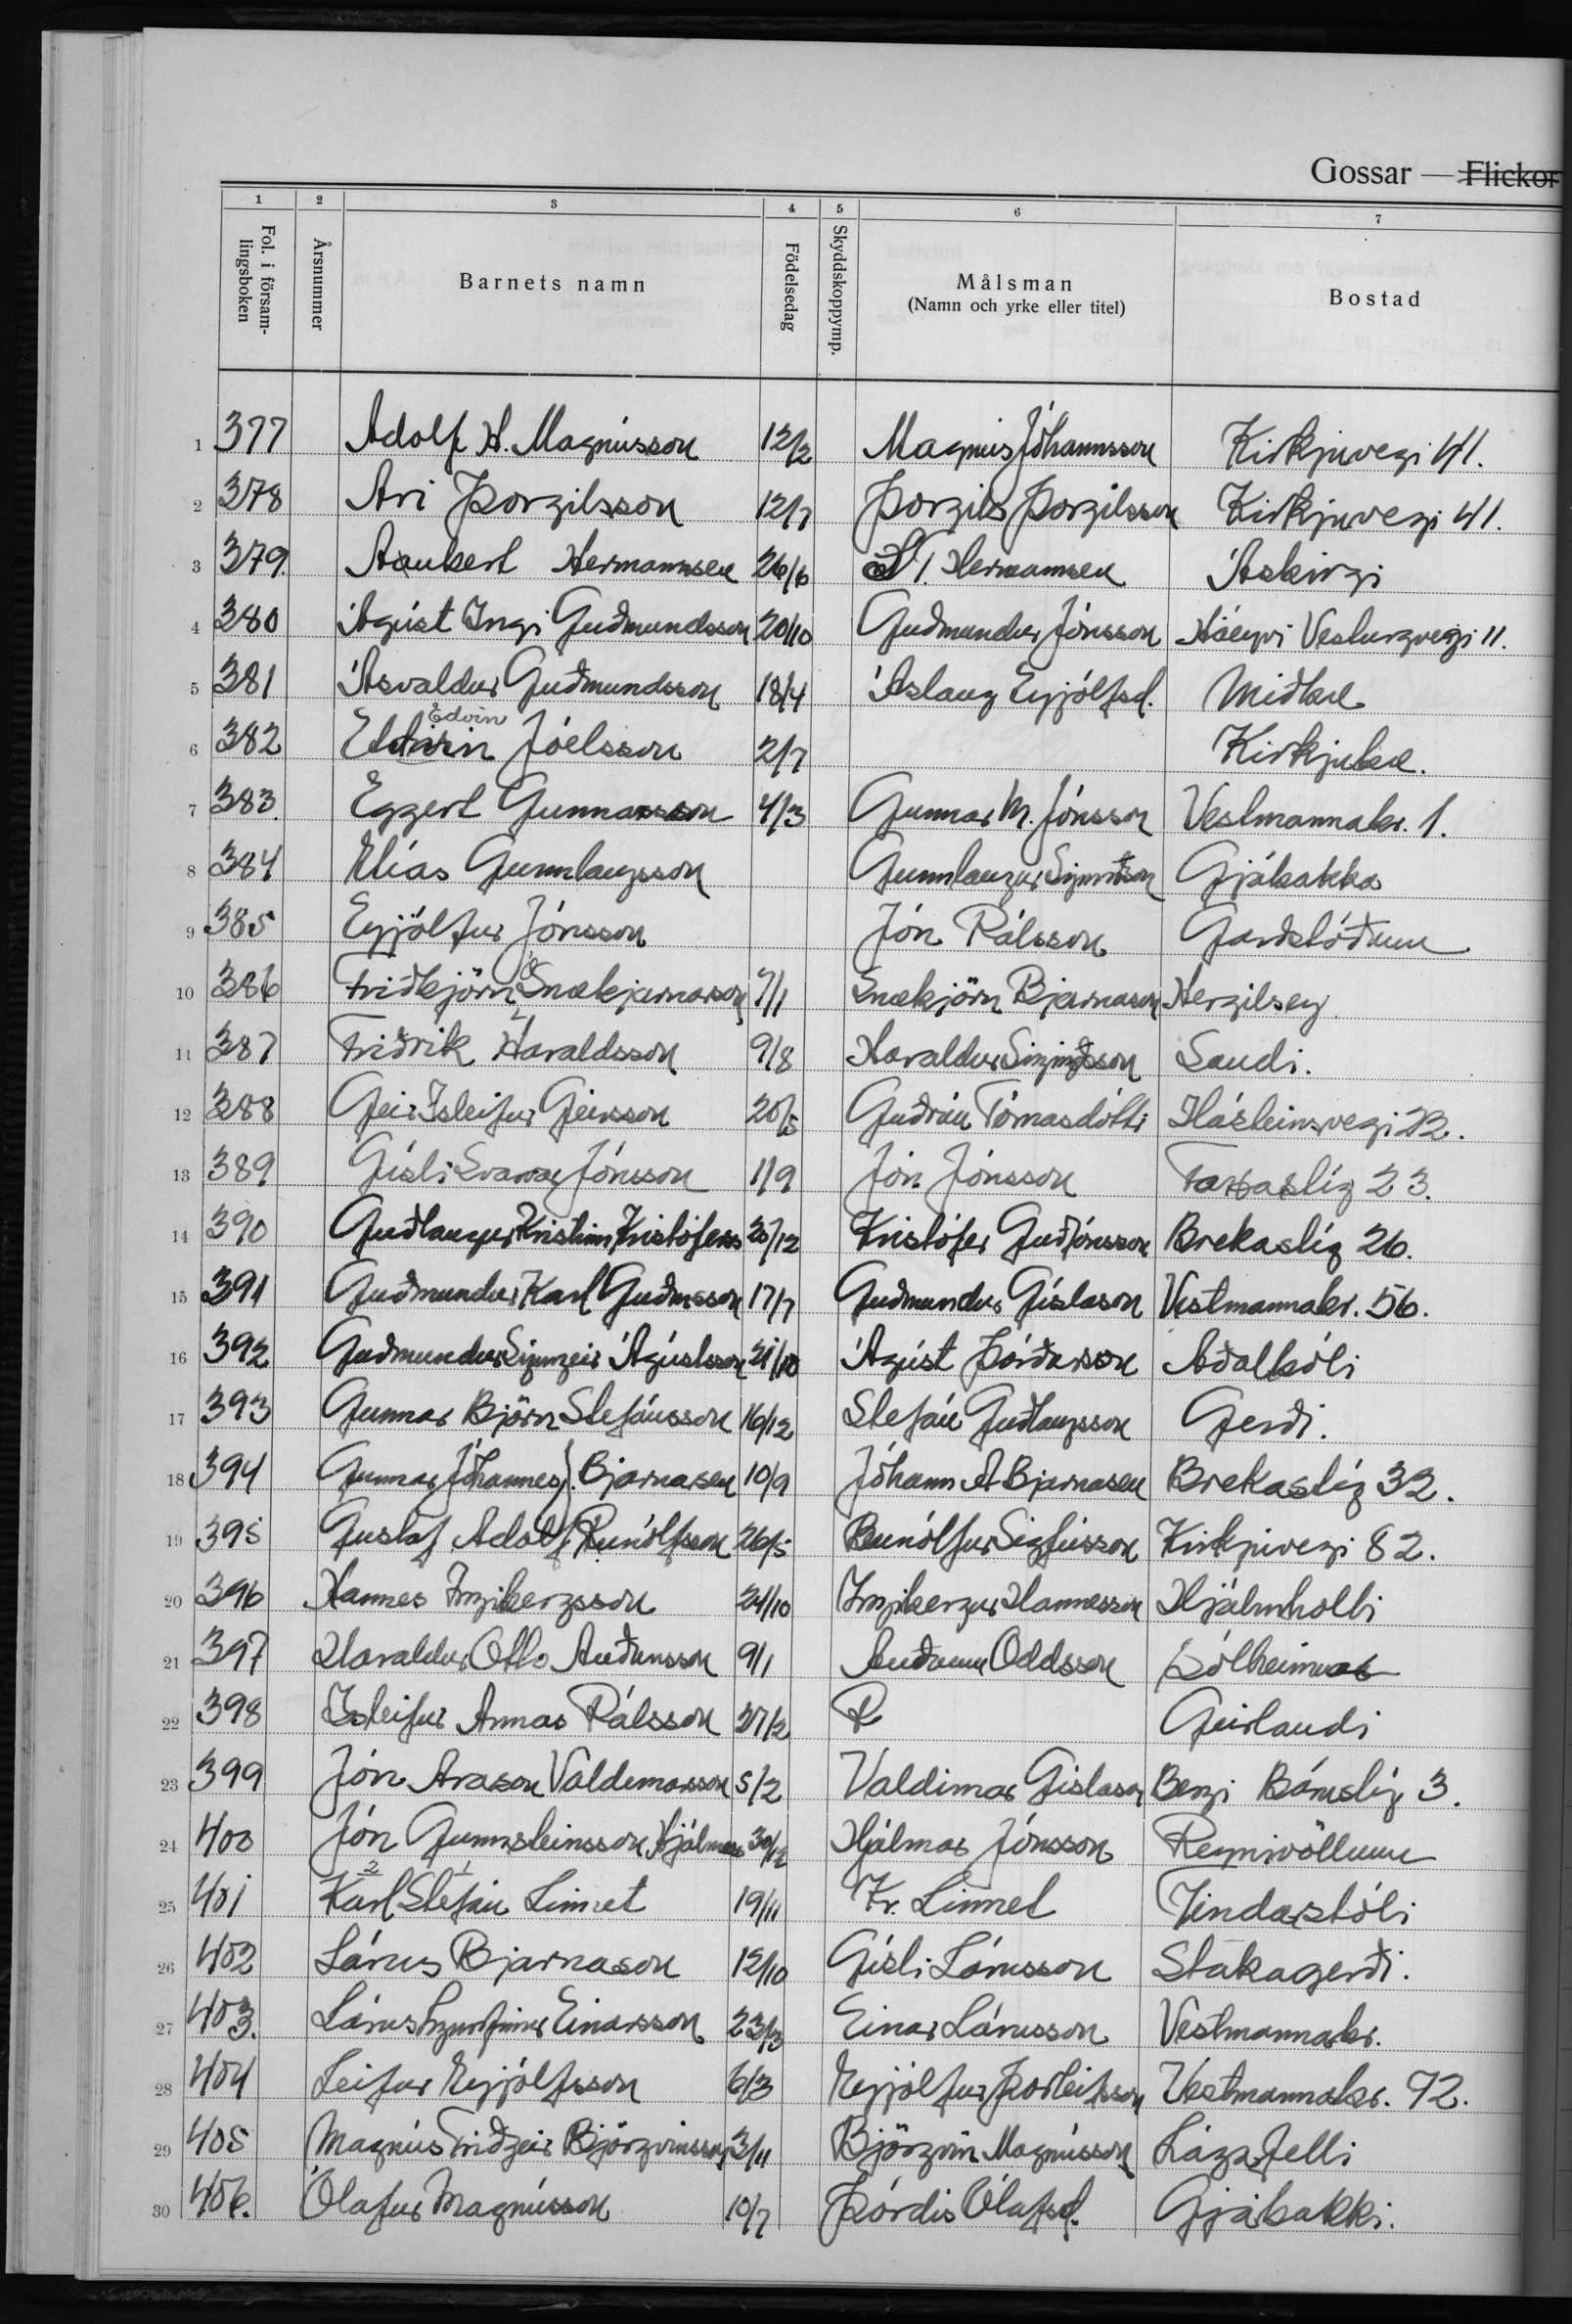 Gossar — Flickor
1 2 3 4 5 6 7
Fol. i försam-
lingsboken
Årsnummer
Barnets namn
Födelsedag
Skyddskoppymp.
Målsman
(Namn och yrke eller titel)
Bostad
1 377 Adolf H. Magnússon 12/2 Magnús Jóhannsson Kirkjuvegi 41.
2 378 Ari Þorgilsson 12/7 Þorgils Þorgilsson Kirkjuvegi 41.
3 379. Hermannsen 26/6 Hermannsen Ásbirgi
4 380 Ágúst Ingi Guðmundsson 20/10 Guðmundur Jónsson Háeyri Vesturvegi 11.
5 381 Ásvaldur Guðmundsson 18/4 Áslaug Eyjólfsd. Miðbæ
Edvin
6 382 Jóelsson 2/7 Kirkjubæ.
7 383. Eggert Gunnarsson 4/3 Gunnar M. Jónsson Vestmannabr. 1.
8 384 Elías Gunnlaugsson Gunnlaugur Sigurðsson Gjábakka
9 385 Eyjólfur Jónsson Jón Pálsson Garðstöðum
10 386 Friðbjörn Ó Snæbjarnarson 7/1 Snæbjörn Bjarnason Hergilsey.
11 387 Friðrik Haraldsson 9/8 Haraldur Sandi.
12 388 Geir Ísleifur Geirsson 20/5 Guðrún Tómasdóttir Hásteinsvegi 22.
13 389 Gísli Svavar Jónsson 1/9 Jón Jónsson Faxastíg 23.
14 390 Guðlaugur Kristinn Kristóferss 20/12 Kristófer Guðjónsson Brekastíg 26.
15 391 Guðmundur Karl Guðmsson 17/7 Guðmundur Gíslason Vestmannabr. 56.
16 392 Guðmundur Siggeir Ágústsson 21/10 Ágúst Þórðarson Aðalbóli
17 393 Gunnar Björn Stefánsson 16/12 Stefán Guðlaugsson Gerði.
18 394 Gunnar Jóhannes J. Bjarnasen 10/9 Jóhann A Bjarnasen Brekastíg 32.
19 395 Gustaf Adolf Runólfsson 26/5 Runólfur Sigfússon Kirkjuvegi 82.
20 396 Hannes Ingibergsson 24/10 Ingibergur Hannesson Hjálmholti
21 397 Haraldur Otto Auðunsson 9/1 Auðunn Oddsson Sólheimar
22 398 Ísleifur Annas Pálsson 27/2 P Geirlandi
23 399 Jón Arason Valdemarsson 5/2 Valdimar Gíslason Bergi Bárustíg 3.
24 400 Jón Gunnsteinsson Hjálmars 30/12 Hjálmar Jónsson Reynivöllum
2 1
25 401 Karl Stefán Linnet 19/11 Kr. Linnet Tindastóli
26 402 Lárus Bjarnason 12/10 Gísli Lárusson Stakagerði.
27 403. Lárus Einarsson 23/3 Einar Lárusson Vestmannabr.
28 404 Leifur Eyjólfsson 6/3 Eyjólfur Þorleifsson Vestmannabr. 72.
29 405 Magnús Friðgeir Björgvinsson 3/11 Björgvin Magnússon Lágafelli
30 406. Ólafur Magnússon 10/7 Þórdís Ólafsd. Gjábakki.